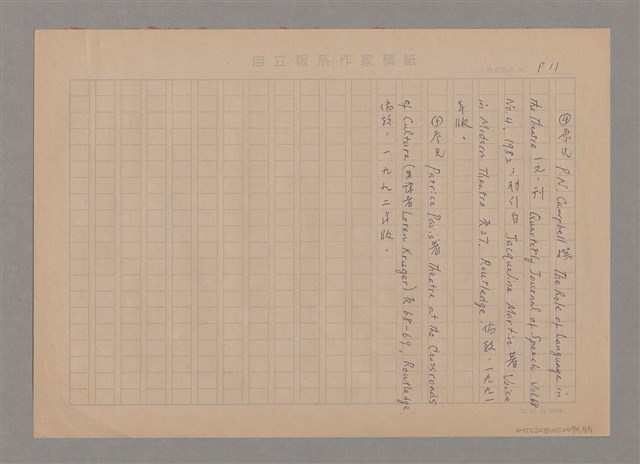 自立報系作家稿紙
P 11
④參見 P.N. Campbell 著 The Role of Language in
the Theatre 文,Quarterly Journal of Speech Vol.68
No. 4, 1982,引自 Jacqueline Martin 著 Voice
in Modern Theatre 頁27, Routledge, 倫敦,一九九一
年版。
參見 Patrice Pavis著 Theatre at the Crossroads
of Culture (英譯者 Loren Kruger) 頁 68-69, Routledge,
倫敦,一九九二年版。